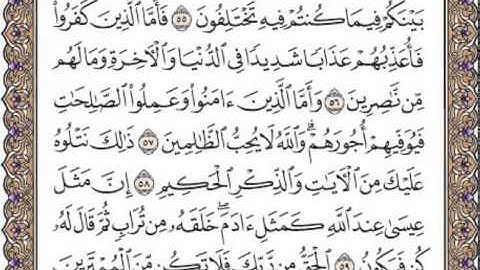 بَيْنَكُمْ فِيمَا كُنتُمْ فِيهِ تَخْتَلِفُونَ ٥٥ فَأَمَّا الَّذِينَ كَفَرُوا
فَأُعَذِّبُهُمْ عَذَابًا شَدِيدًا فِي الدُّنْيَا وَالْآخِرَةِ وَمَا لَهُم
مِّن نَّاصِرِينَ ٥٦ وَأَمَّا الَّذِينَ ءَامَنُوا وَعَمِلُوا الصَّالِحَاتِ
فَيُوَفِّيهِمْ أُجُورَهُمْ ۗ وَاللَّهُ لَا يُحِبُّ الظَّالِمِينَ ٥٧ ذَٰلِكَ نَتْلُوهُ
عَلَيْكَ مِنَ الْآيَاتِ وَالذِّكْرِ الْحَكِيمِ ٥٨ إِنَّ مَثَلَ
عِيسَىٰ عِندَ اللَّهِ كَمَثَلِ ءَادَمَ ۖ خَلَقَهُ مِن تُرَابٍ ثُمَّ قَالَ لَهُ
كُن فَيَكُونُ ٥٩ الْحَقُّ مِن رَّبِّكَ فَلَا تَكُن مِّنَ الْمُمْتَرِينَ